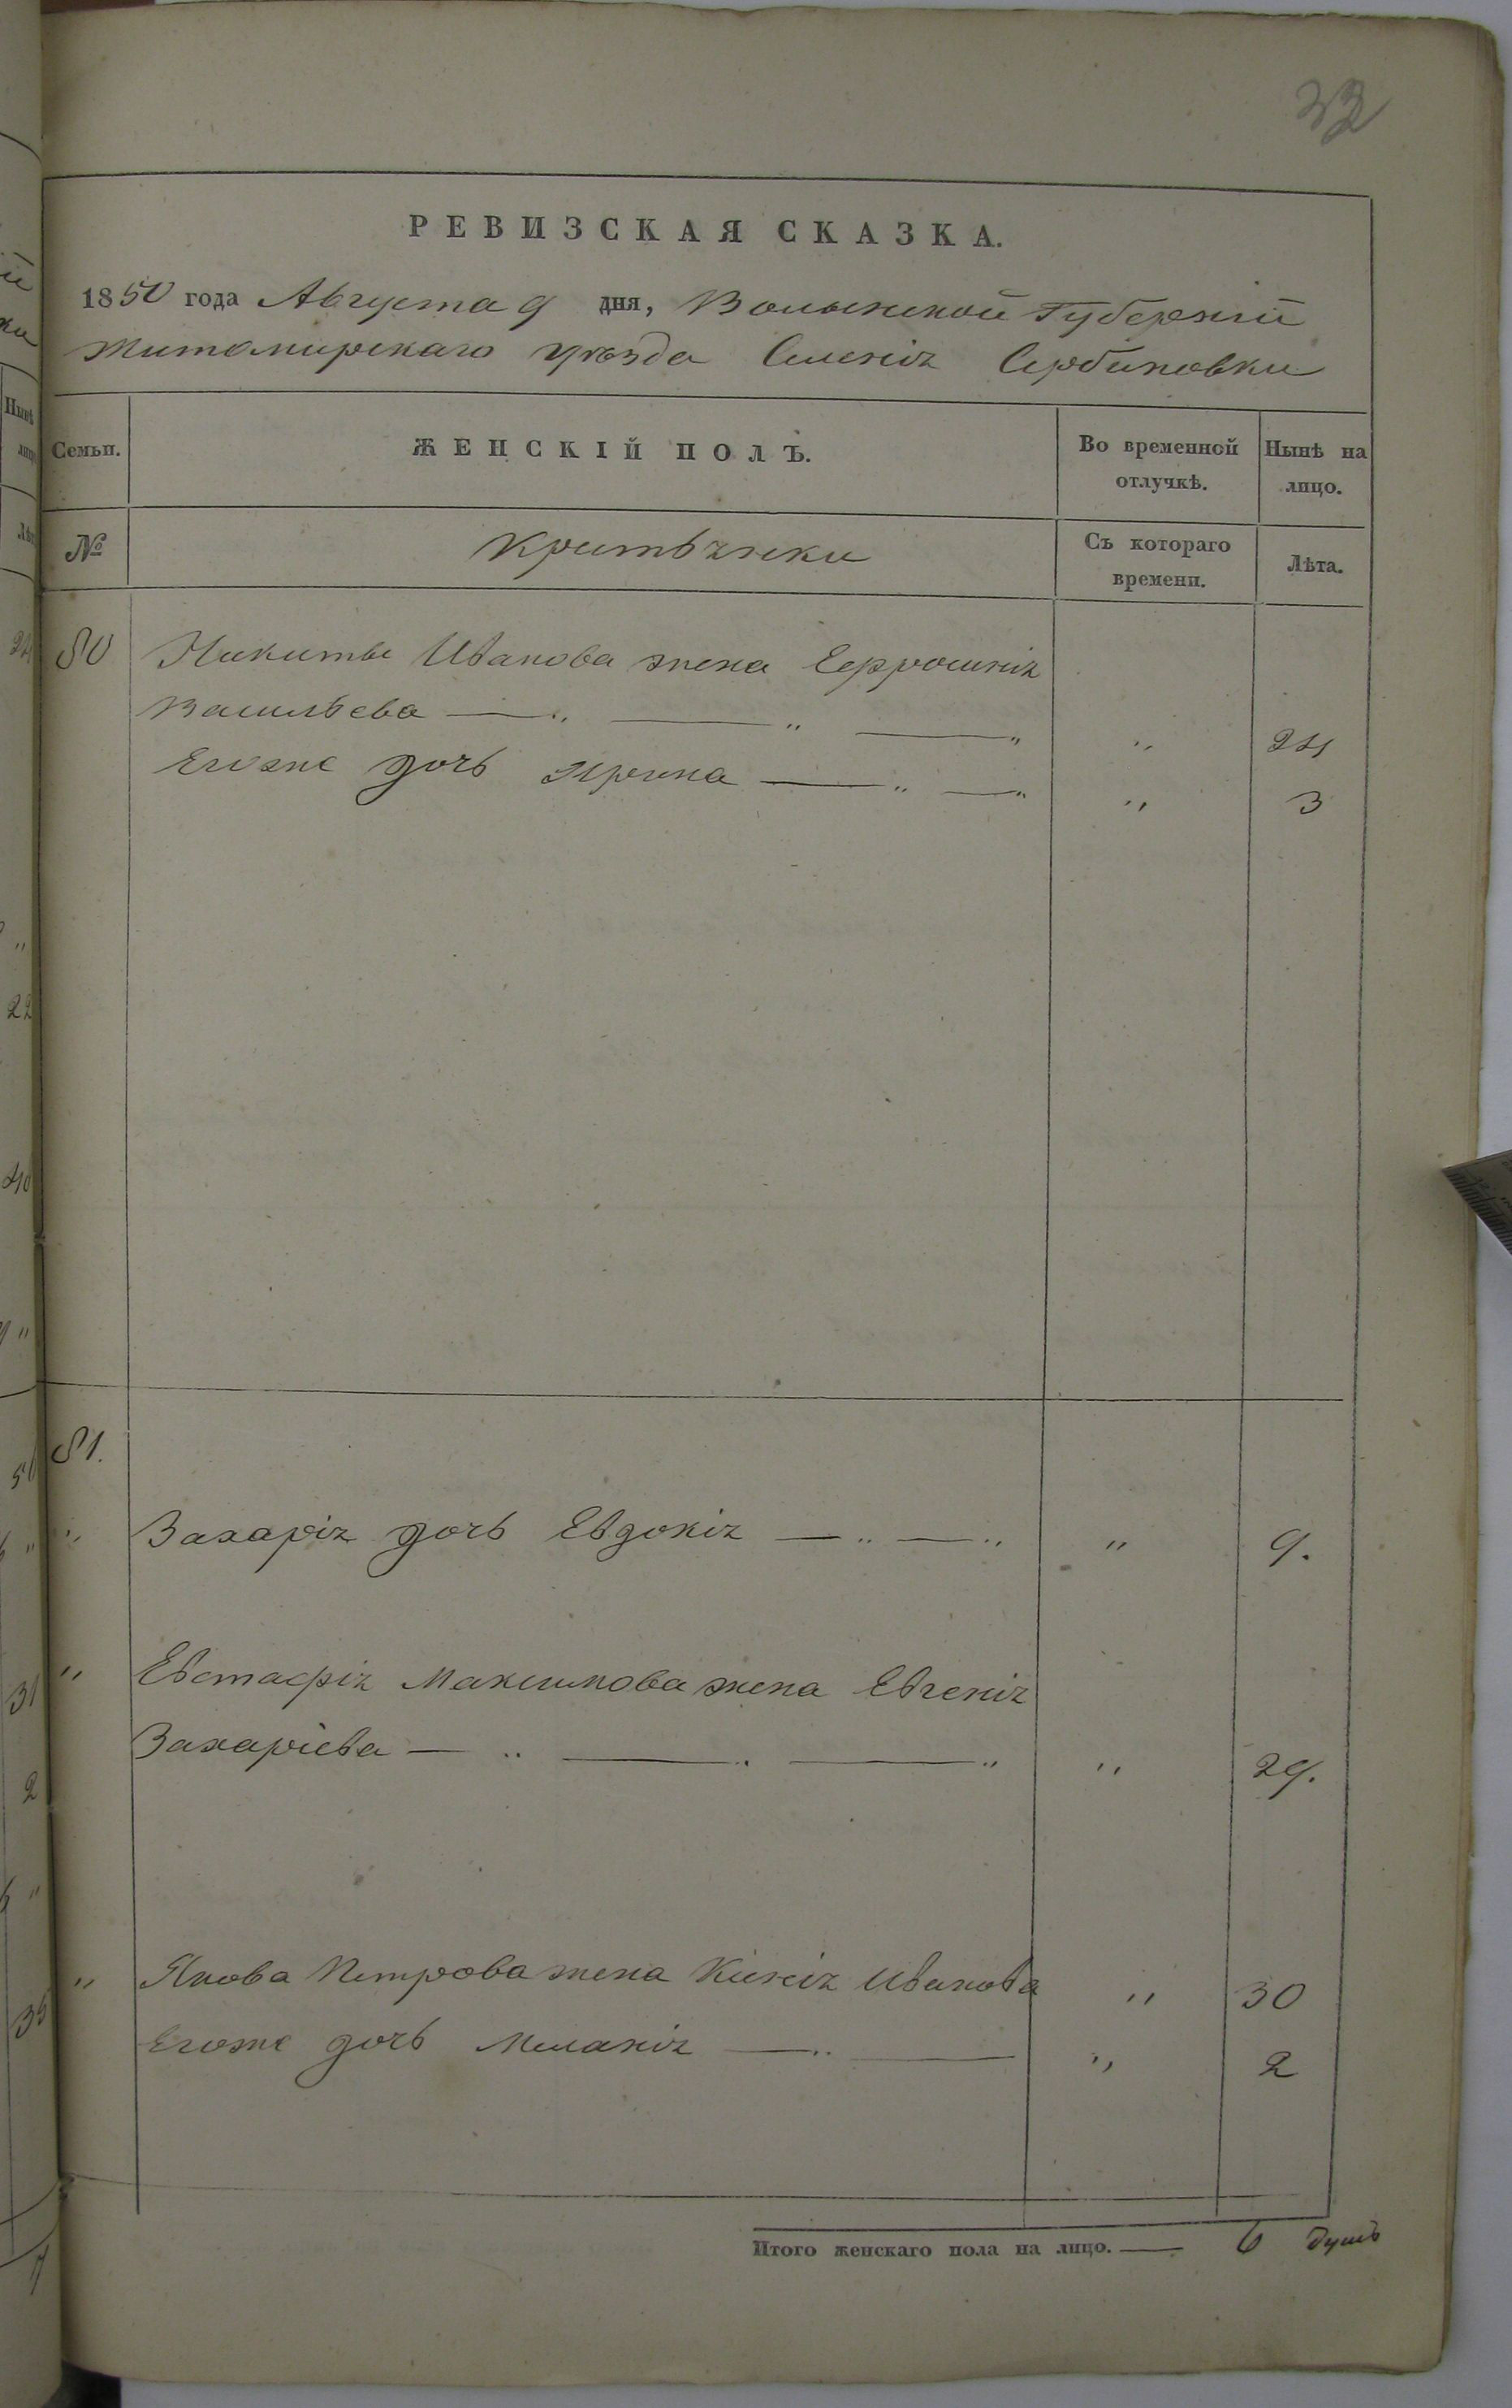 33
РЕВИЗСКАЯ СКАЗКА.
1850 года Августа 9 дня, Волынской Губерніи
Житомирскаго уѣзда Селенія Сербиновки
Семьи. ЖЕНСКІЙ ПОЛЪ. Во временной отлучкѣ. Нынѣ на лицо.
№ Съ котораго времени. Лѣта.
80 Никиты Иванова жена Ефросинія
Васильева — „ — „ — „ „ 24
Егоже дочь Ирина — „ — „ „ 3
81.
„ Захарія дочь Евдокія — „ — „ „ 9.
„ Евстафія Максимова жена Евгенія
Захаріева — „ — „ — „ „ 29.
„ Якова Петрова жена Ксенія Иванова „ 30
Егоже дочь Меланія — „ — „ 2
Итого женскаго пола на лицо. — 6 душъ